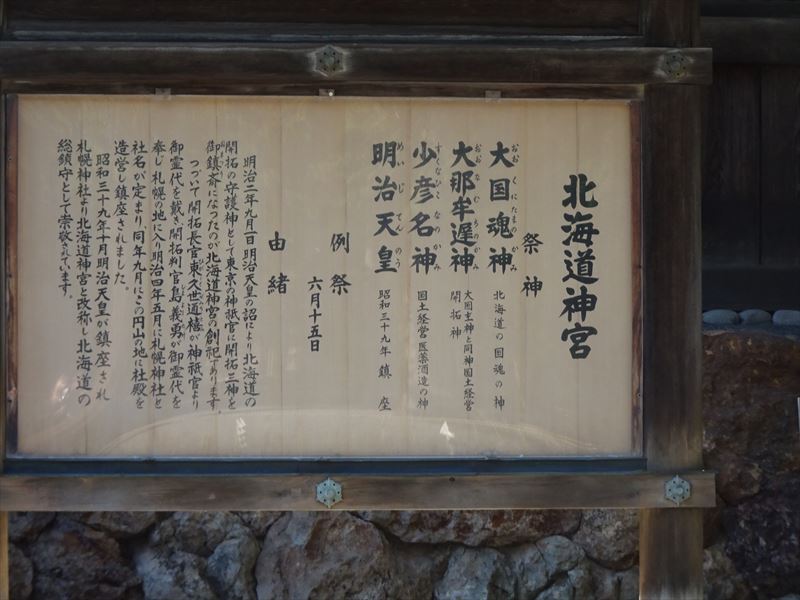 北海道神宮
祭神
大国魂神 北海道の国魂の神
おおくにたまのかみ
大那牟遅神 大国主神と同神国土経営
開拓神
おおなむちのかみ
少彦名神 国土経営医薬酒造の神
すくなひこなのかみ
明治天皇 昭和三十九年鎮座
めいじてんのう
例祭
六月十五日
由緒
明治二年九月一日明治天皇の詔により北海道の
開拓の守護神として東京の神祇官に開拓三神を
御鎮斎になったのが北海道神宮の創祀であります。
つづいて開拓長官東久世通禧が神祇官より
御霊代を戴き開拓判官島義勇が御霊代を
奉じ札幌の地に入り明治四年五月に札幌神社と
社名が定まり、同年九月にこの円山の地に社殿を
造営し鎮座されました。
昭和三十九年十月明治天皇が鎮座され
札幌神社より北海道神宮と改称し北海道の
総鎮守として崇敬されています。